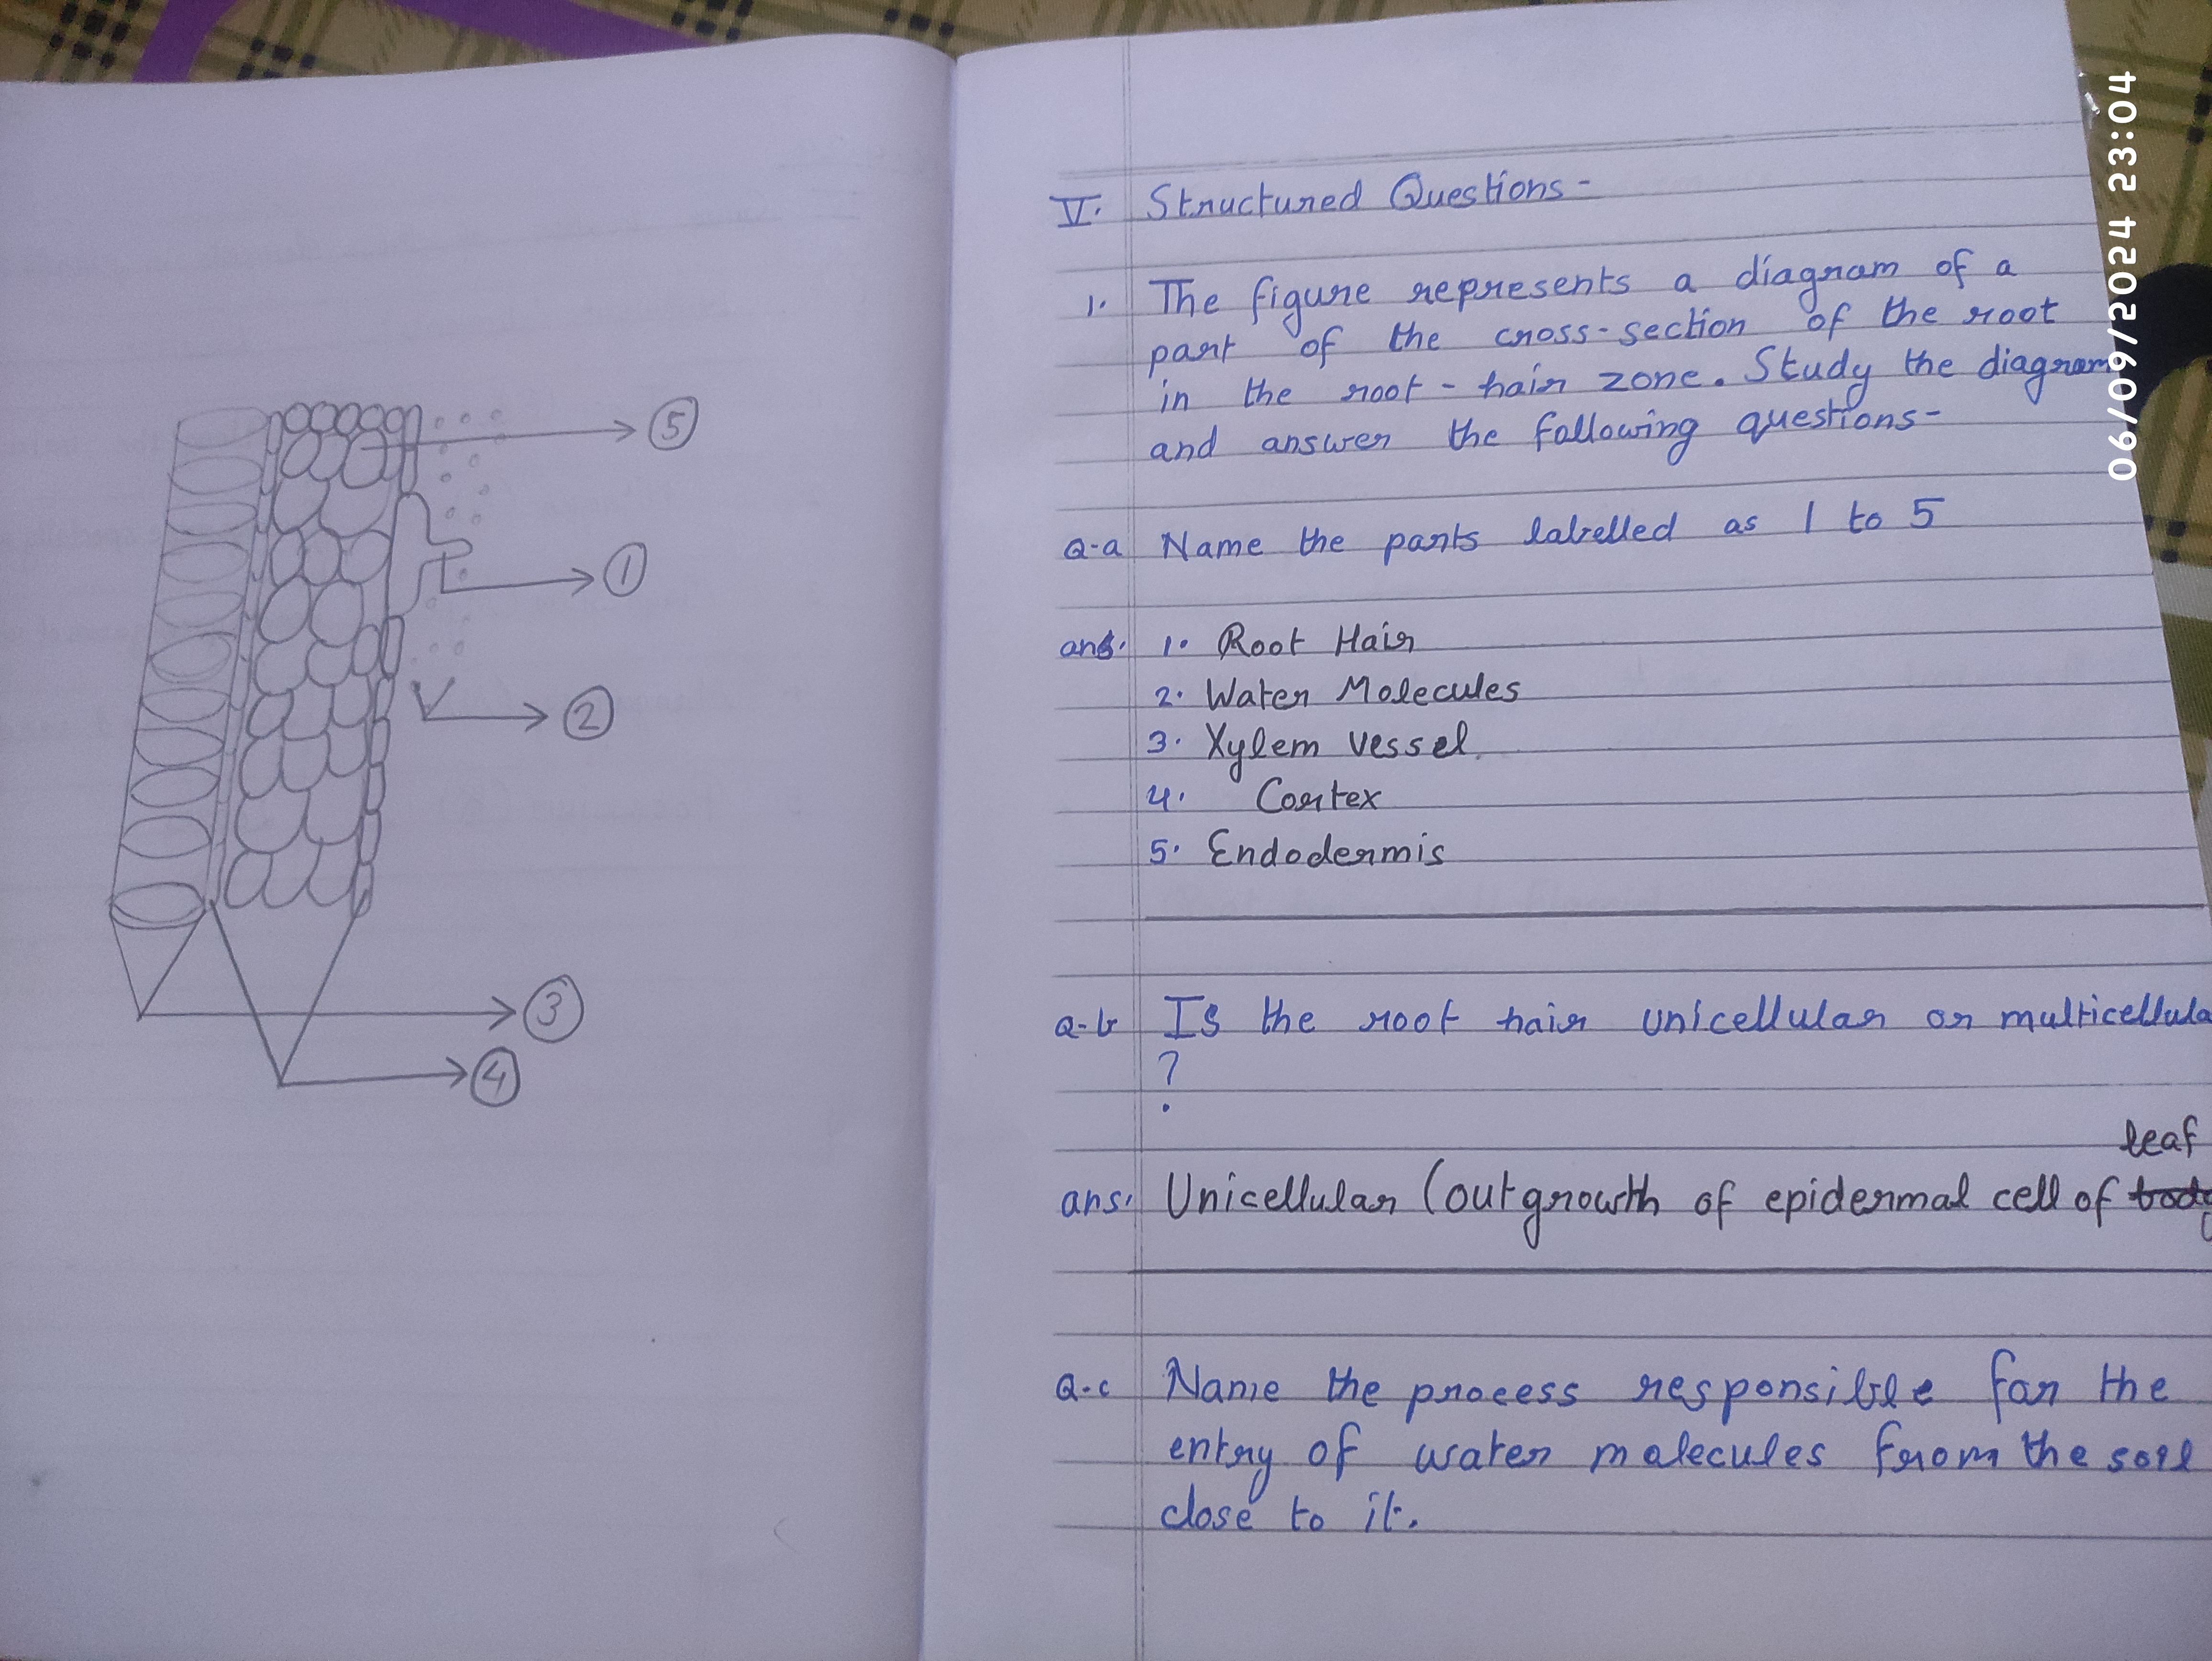 5
1
2
3
4
V. Structured Questions -
1. The figure represents a diagram of a
part of the cross-section of the root
in the root - hair zone. Study the diagram
and answer the following questions-
Q-a Name the parts labelled as 1 to 5
ans. 1. Root Hair
2. Water Molecules
3. Xylem vessel.
4. Cortex
5. Endodermis
Q-b Is the root hair unicellular or multicellula
?
leaf
ans. Unicellular (outgrowth of epidermal cell of body
Q-c Name the process responsible for the
entry of water molecules from the soil
close to it.
06/09/2024 23:04